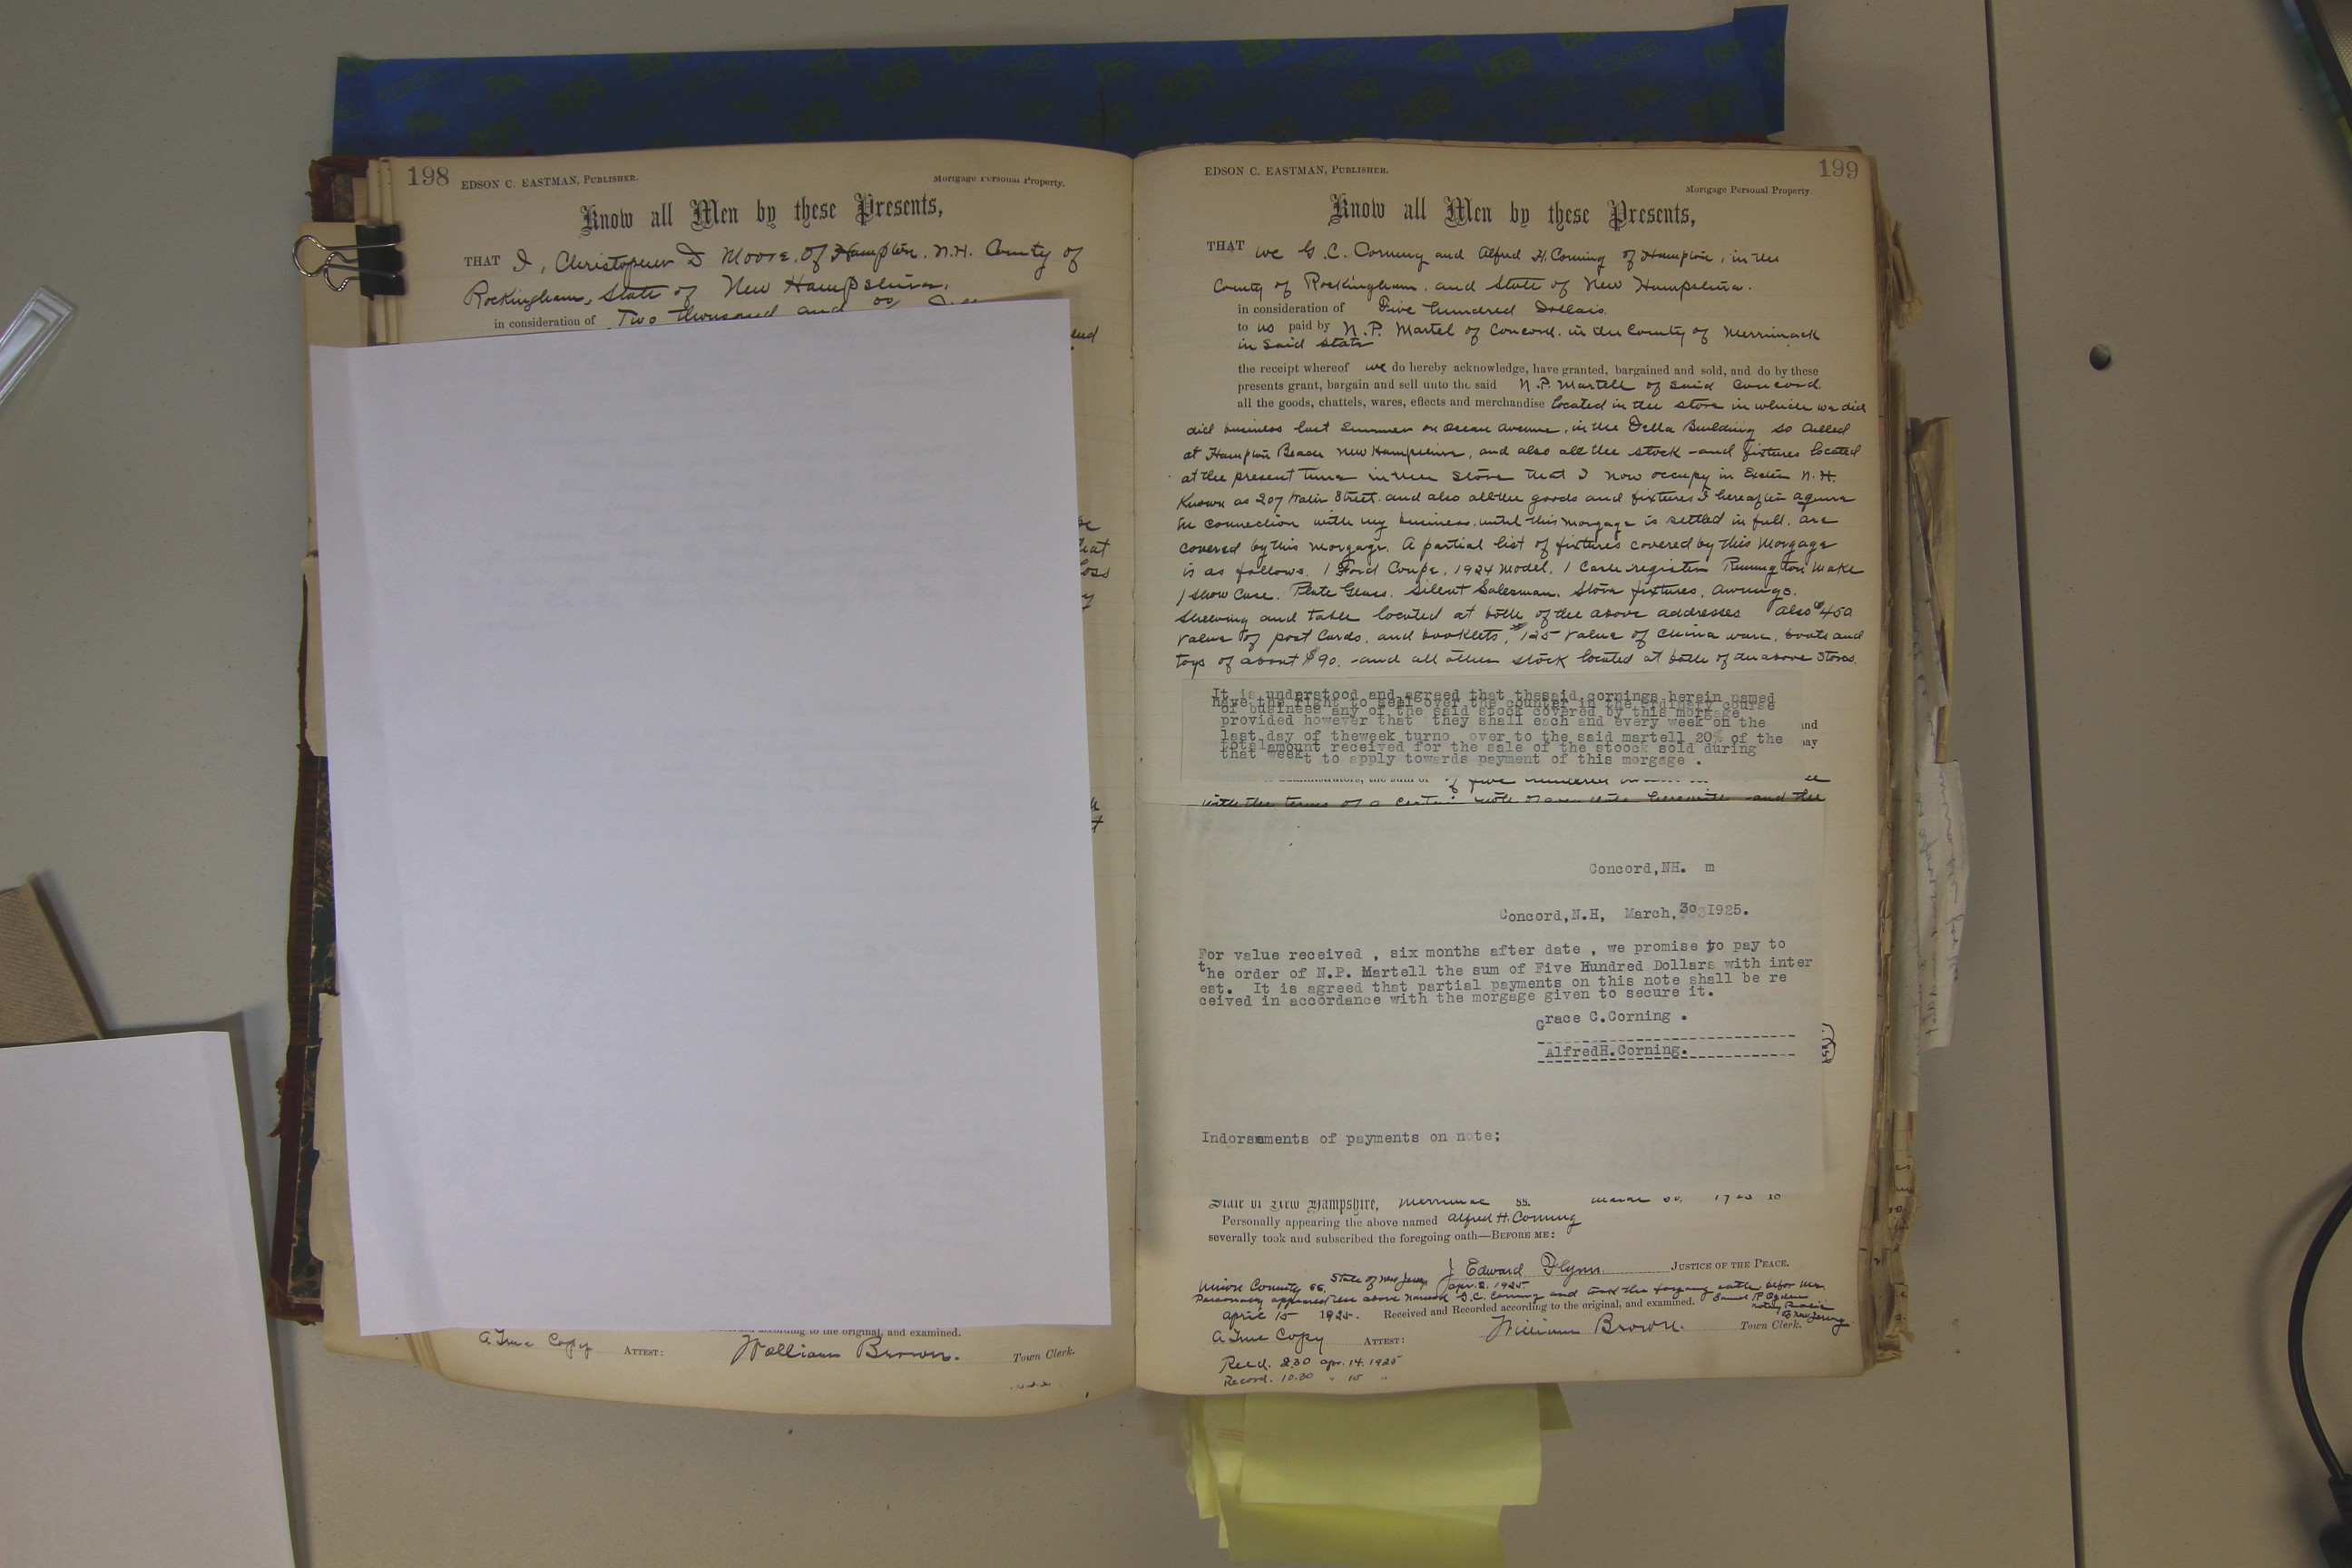 198 EDSON C. EASTMAN, PUBLISHER. Mortgage Personal Property.
Know all Men by these Presents,
THAT I, Christopher D Moore. Of Hampton. N.H. County of
Rockingham, State of New Hampshire.
in consideration of Two thousand and
eat
loss
according to the original, and examined.
A True Copy ATTEST: William Brown. Town Clerk.
EDSON C. EASTMAN, PUBLISHER. 199
Mortgage Personal Property
Know all Men by these Presents,
THAT we G.C. Corning and Alfred H. Corning of Hampton, in the
County of Rockingham, and State of New Hampshire.
in consideration of Five hundred Dollars.
to us paid by N.P. Martel of Concord. in the County of Merrimack
in Said State
the receipt whereof we do hereby acknowledge, have granted, bargained and sold, and do by these
presents grant, bargain and sell unto the said N.P. Martell of said Concord.
all the goods, chattels, wares, effects and merchandise located in the store in which we did
did business last Summer on Ocean Avenue, in the Della Building so called
at Hampton Beach New Hampshire, and also all the stock and fixtures located
at the present time in the store that I now occupy in Exeter N.H.
Known as 207 Water Street. and also all the goods and fixtures I hereafter aquire
in connection with my business. until this morgage is settled in full. are
covered by this morgage. A partial list of fixtures covered by this Morgage
is as follows. 1 Ford Coupe, 1924 Model. 1 Cash register Remington Make
1 Show Case. Plate Glass. Silent Salesman. Store fixtures, Awnings.
Shelving and table located at both of the above addresses Also $450
value of post Cards. and booklets, $125 value of China ware, boats and
toys of about $90. and all other stock located at both of the above Stores.
It is understood and agreed that thesaid cornings herein named
have the right to sell over the counter in the ordinary course
of business any of the said stock covered by this morgage
provided however that they shall each and every week on the
last day of theweek turno over to the said martell 20% of the
totalamount received for the sale of the stoock sold during
that weekt to apply towards payment of this morgage .
and
pay
administrators, the sum of of five hundred
with the terms of a certain note of even date herewith and the
Concord,NH. m
Concord,N.H, March,30 1925.
For value received , six months after date , we promise to pay to
the order of N.P. Martell the sum of Five Hundred Dollars with inter
est. It is agreed that partial payments on this note shall be re
ceived in accordance with the morgage given to secure it.
Grace C.Corning .
AlfredH.Corning.
Indorsements of payments on note;
State of New Hampshire, Merrimac ss.
Personally appearing the above named Alfred H. Corning
severally took and subscribed the foregoing oath—BEFORE ME:
J Edward Flynn. JUSTICE OF THE PEACE.
Union County ss. State of New Jersey Apr. 2. 1925
Personally appeared the above named G.C. Corning and took the forgoing oath before me.
Notary Public
New Jersey
April 15 1925. Received and Recorded according to the original, and examined.
A True Copy ATTEST: William Brown. Town Clerk.
Recd. 2.30 Apr. 14. 1925
Record. 10.30 " 15 "